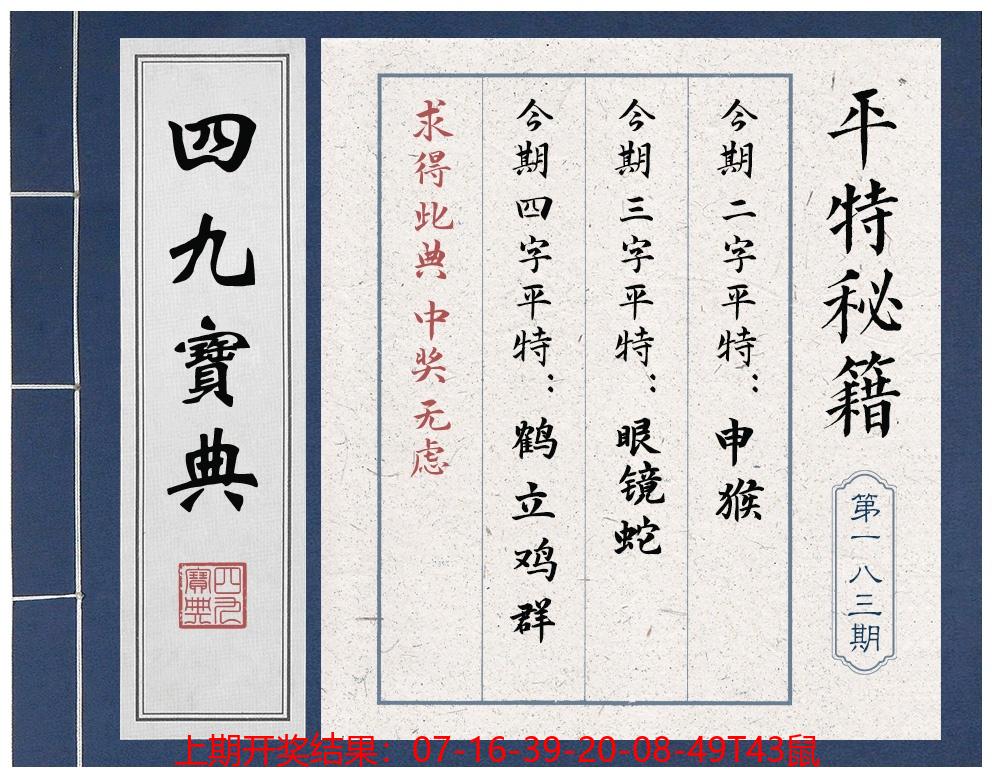 平特秘籍
第一八三期
今期二字平特：申猴
今期三字平特：眼镜蛇
今期四字平特：鹤立鸡群
求得此典 中奖无虑
四九寶典
四九寶典
上期开奖结果：07-16-39-20-08-49T43鼠